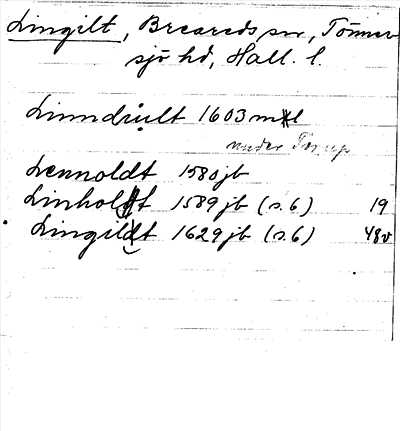 Lingilt, Breareds sn., Tönner
sjö hd, Hall. l.
Linndiult 1603 ml
under Torup
Lennoldt 1580 jb
Linholdt 1589 jb (s. 6) 19
Lingildt 1629 jb (s. 6) 48v